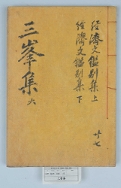 經濟文鑑別集上
經濟文鑑別集下
三峯集
六
共七